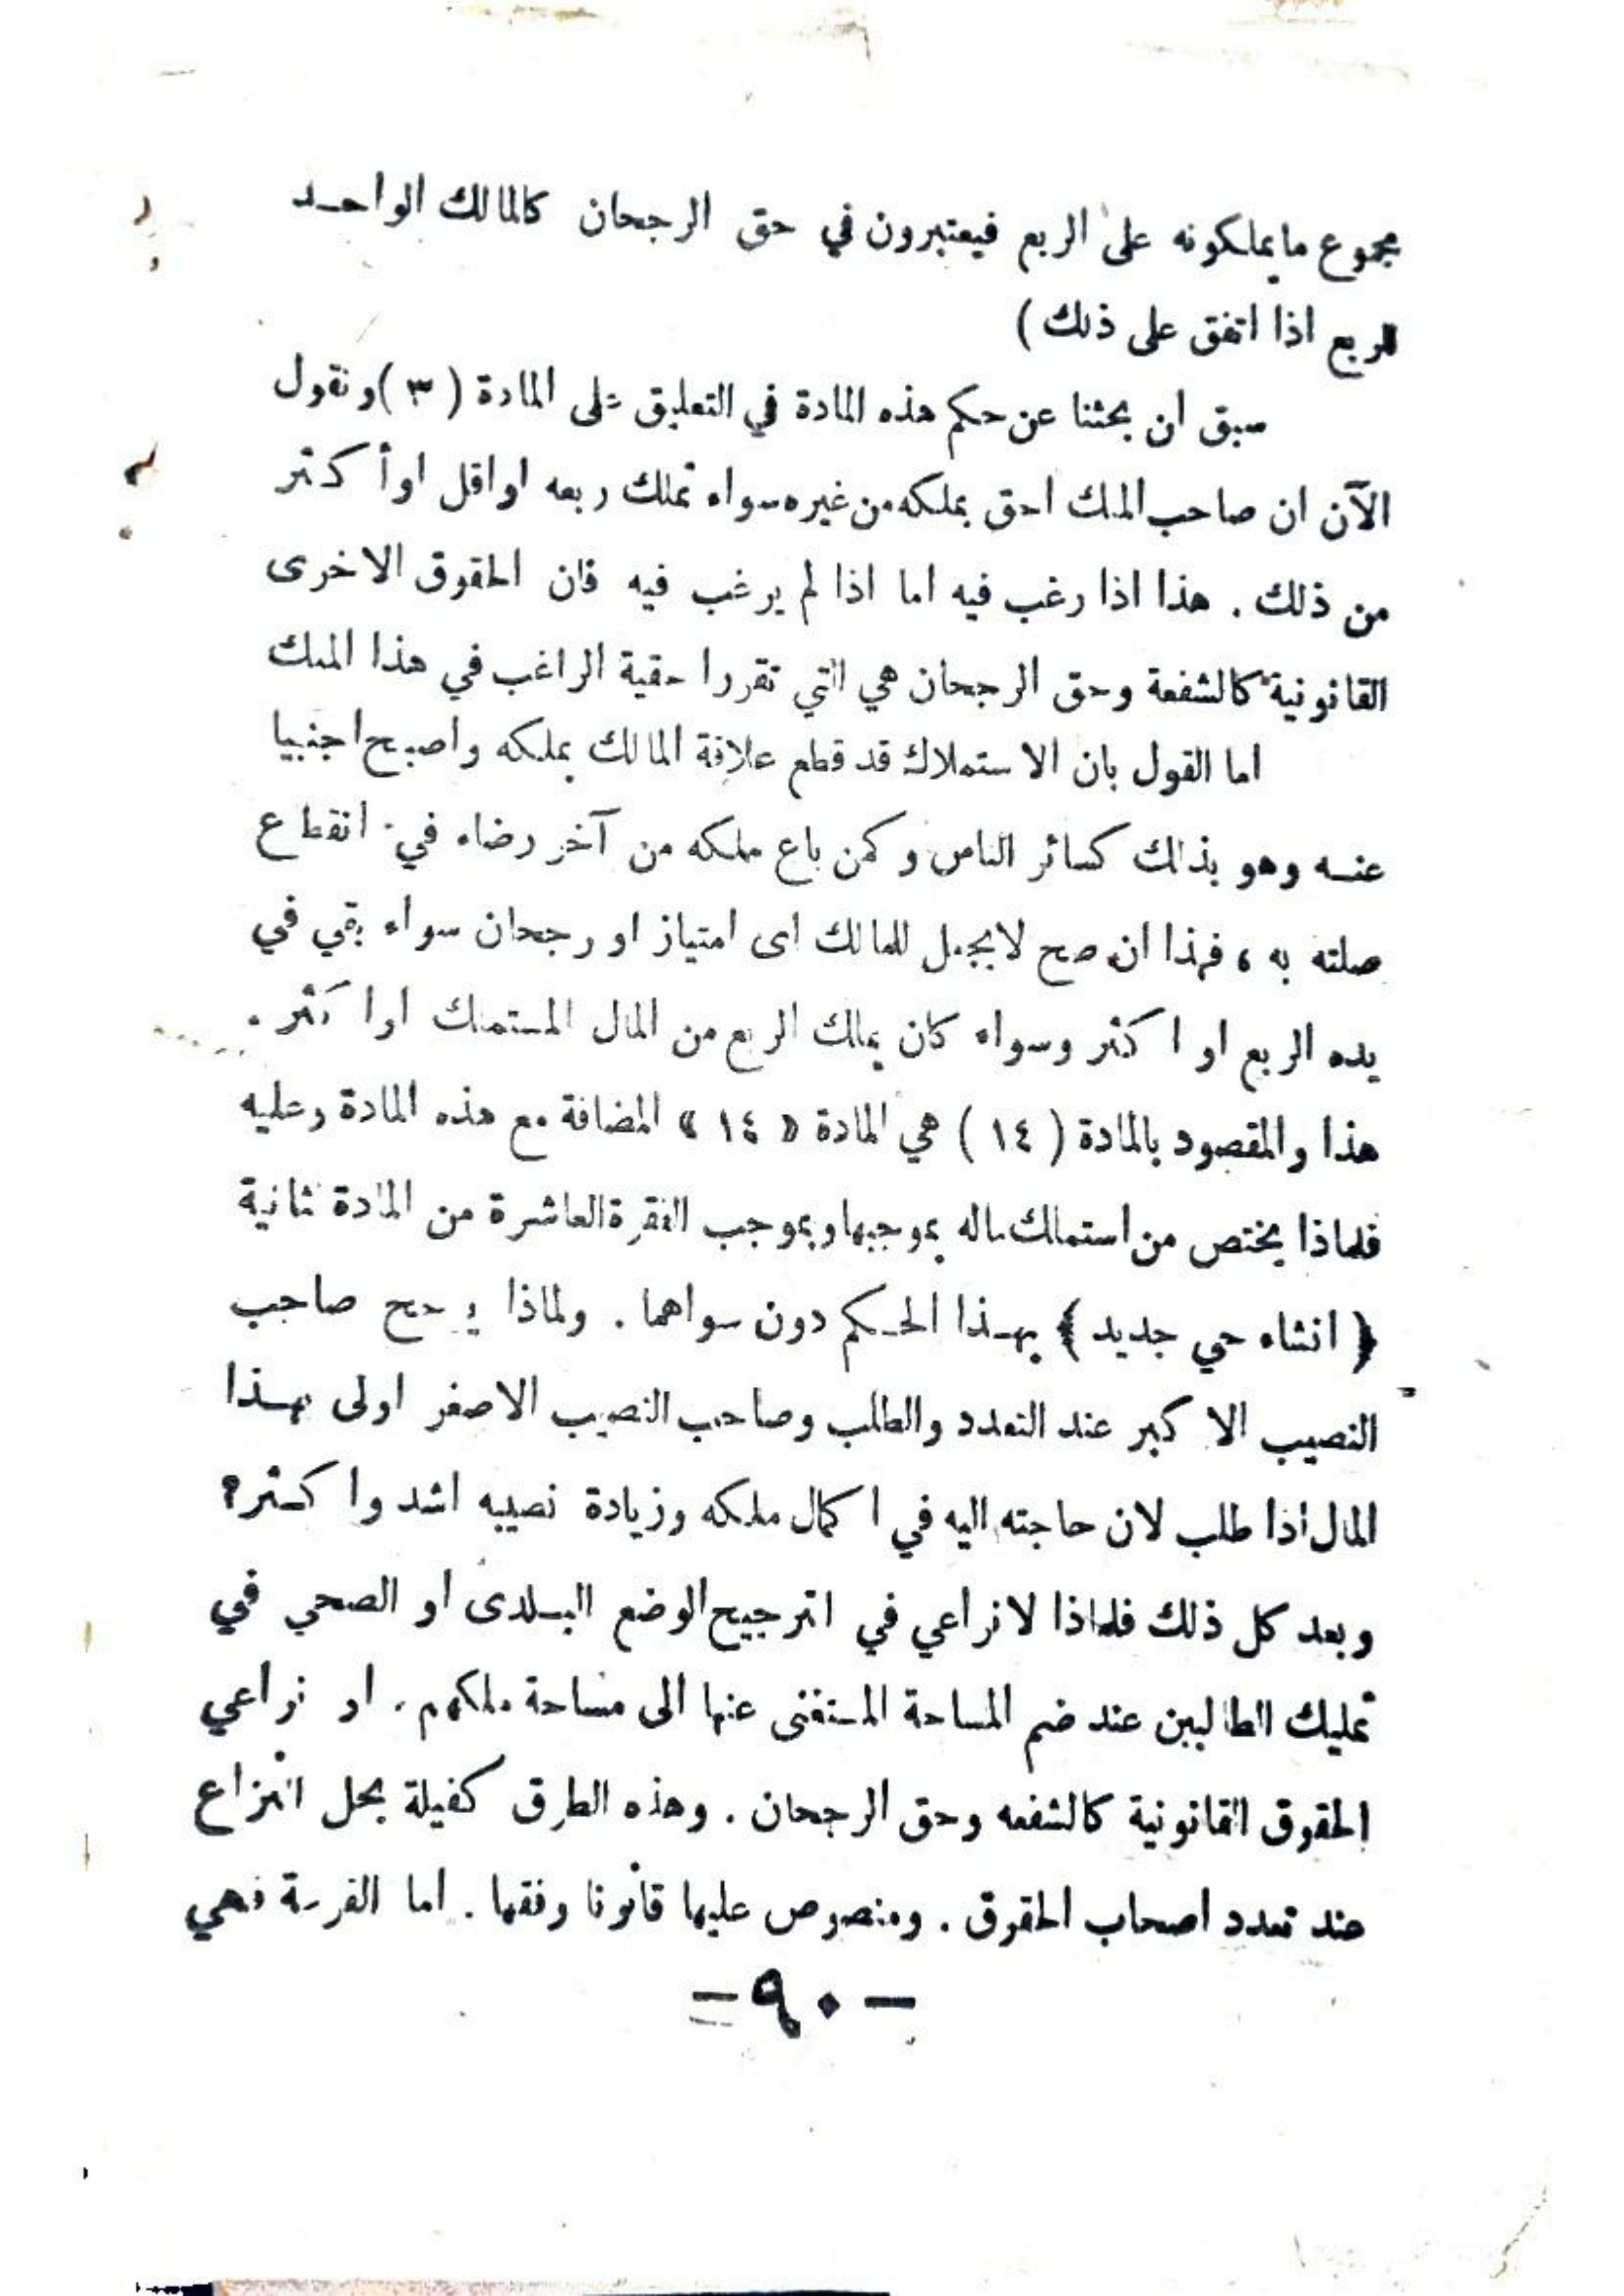 مجموع مايملكونه على الربع فيعتبرون في حق الرجحان كالمالك الواحد
لربع اذا اتفق على ذلك )
سبق ان بحثنا عن حكم هذه المادة في التعليق على المادة ( ٣ ) ونقول
الآن ان صاحب الملك احق بملكه من غيره سواء تملك ربعه او اقل او أكثر
من ذلك . هذا اذا رغب فيه اما اذا لم يرغب فيه فان الحقوق الاخرى
القانونية كالشفعة وحق الرجحان هي التي تقرر احقية الراغب في هذا الملك
اما القول بان الاستملاك قد قطع علاقة المالك بملكه واصبح اجنبيا
عنه وهو بذلك كسائر الناس وكمن باع ملكه من آخر رضاء في انقطاع
صلته به ، فهذا ان صح لايجعل للمالك اى امتياز او رجحان سواء بقي في
يده الربع او اكثر وسواء كان يملك الربع من المال المستملك او اكثر .
هذا والمقصود بالمادة ( ١٤ ) هي المادة « ١٤ » المضافة مع هذه المادة وعليه
فلماذا يختص من استملك ماله بموجبها وبموجب الفقرة العاشرة من المادة ثانية
( انشاء حي جديد ) بهذا الحكم دون سواهما . ولماذا يرجح صاحب
النصيب الاكبر عند التعدد والطلب وصاحب النصيب الاصغر اولى بهذا
المال اذا طلب لان حاجته اليه في اكمال ملكه وزيادة نصيبه اشد واكثر؟
وبعد كل ذلك فلماذا لانراعي في الترجيح الوضع البلدى او الصحي في
تمليك الطالبين عند ضم المساحة المستغنى عنها الى مساحة ملكهم . او نراعي
الحقوق القانونية كالشفعه وحق الرجحان . وهذه الطرق كفيلة بحل النزاع
عند تعدد اصحاب الحقوق . ومنصوص عليها قانونا وفقها . اما القرعة فهي
– ٩٠ –